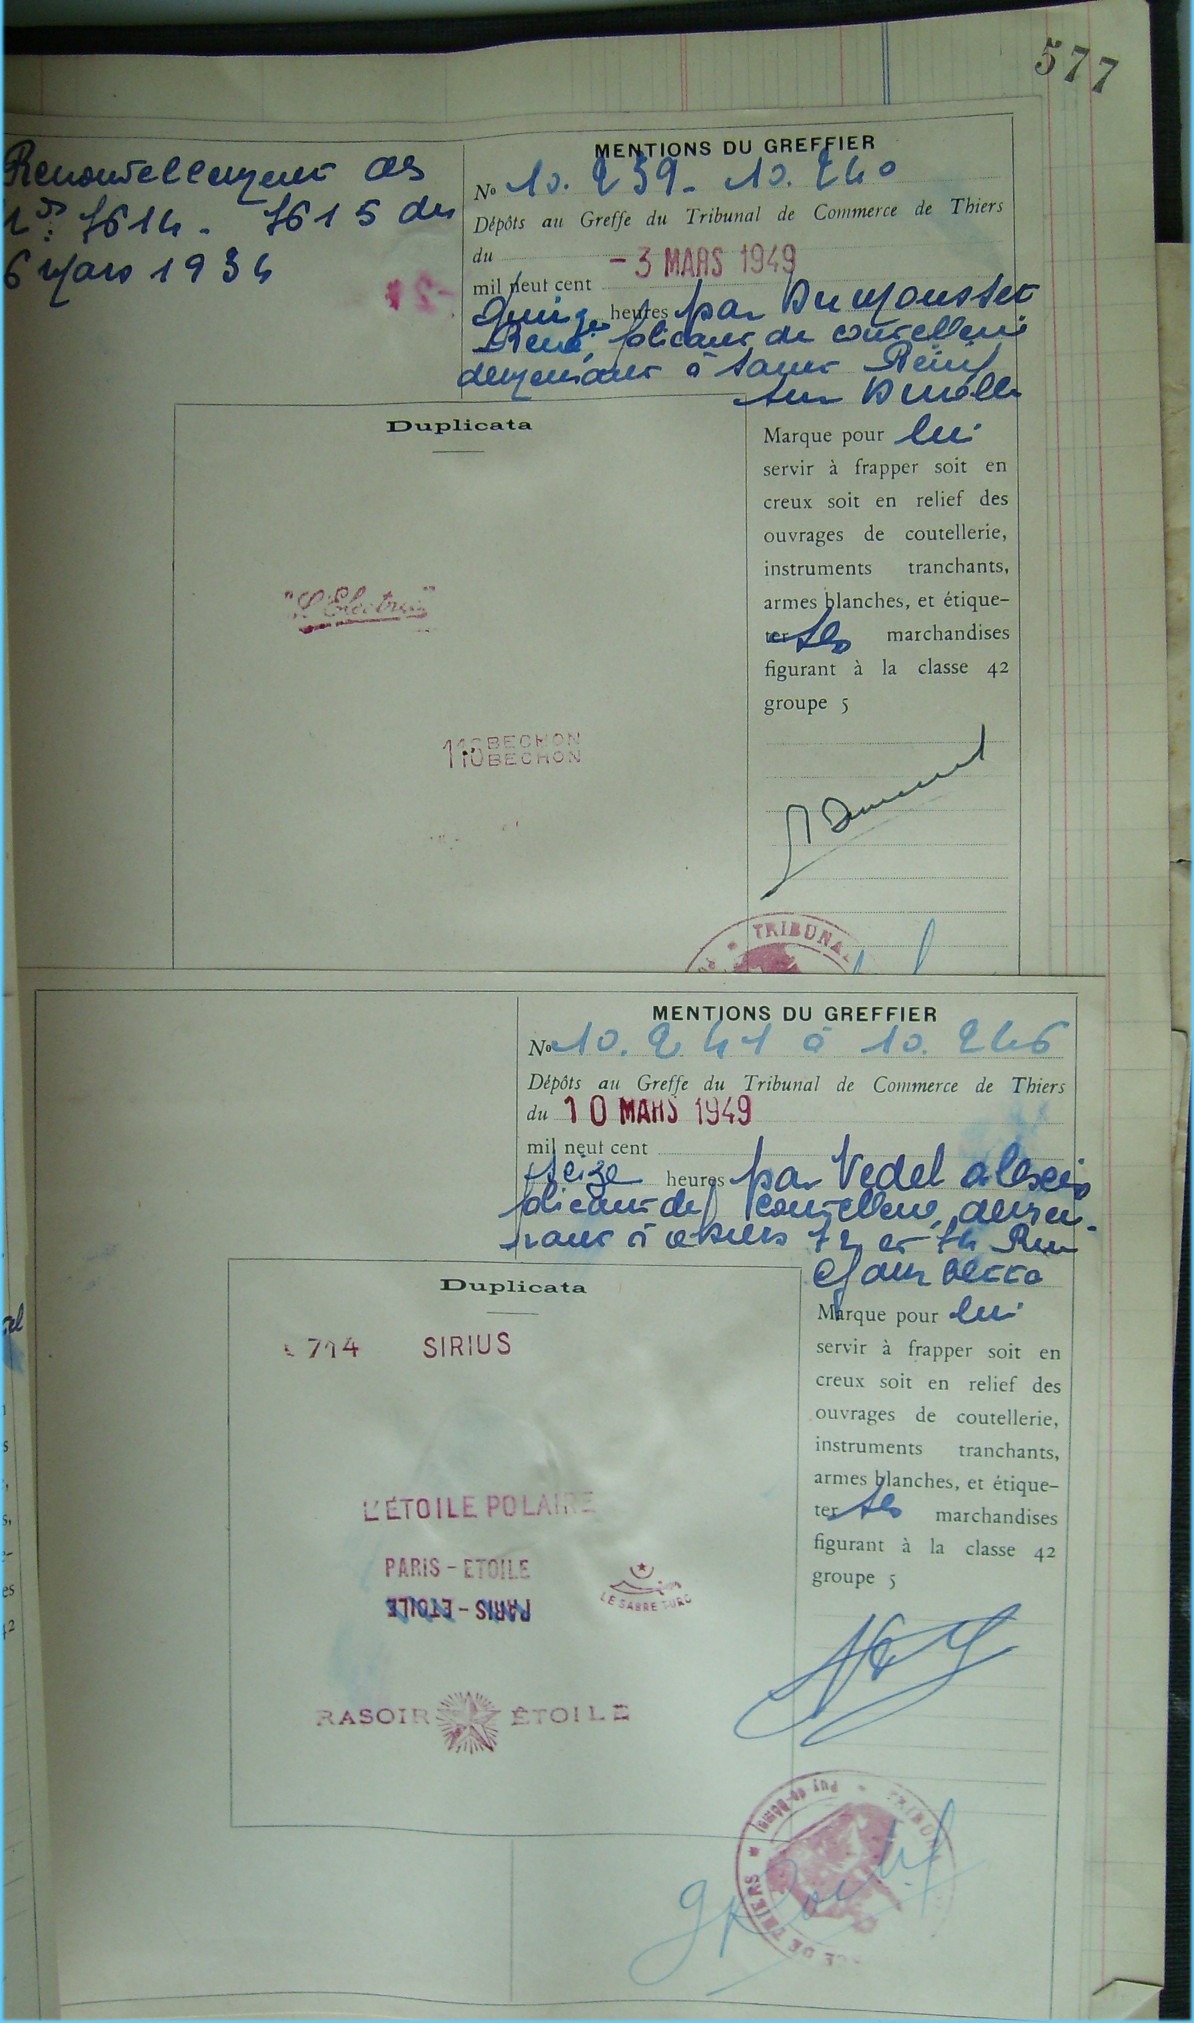 577
Renouvellement des
nos 7614 - 7615 du
6 Mars 1934
MENTIONS DU GREFFIER
No 10.239 - 10.240
Dépôts au Greffe du Tribunal de Commerce de Thiers
du - 3 MARS 1949
mil neuf cent
Quinze heures par Dumousset
René, fabricant de coutellerie
demeurant à Saint Rémy
sur Durolle
Duplicata
"L'Electric"
116 BECHON
116 BECHON
Marque pour lui
servir à frapper soit en
creux soit en relief des
ouvrages de coutellerie,
instruments tranchants,
armes blanches, et étique-
ter ses marchandises
figurant à la classe 42
groupe 5
TRIBUNAL
MENTIONS DU GREFFIER
No 10.241 à 10.246
Dépôts au Greffe du Tribunal de Commerce de Thiers
du 10 MARS 1949
mil neuf cent
seize heures par Vedel Alexis
fabricant de coutellerie, demeu-
rant à Thiers 72 et 74 Rue
Gambetta
Duplicata
714 SIRIUS
L'ÉTOILE POLAIRE
PARIS - ETOILE
PARIS - ETOILE
LE SABRE TURC
RASOIR ÉTOILE
Marque pour lui
servir à frapper soit en
creux soit en relief des
ouvrages de coutellerie,
instruments tranchants,
armes blanches, et étique-
ter ses marchandises
figurant à la classe 42
groupe 5
CE DE THIERS * Puy-de-Dôme * TRIBU